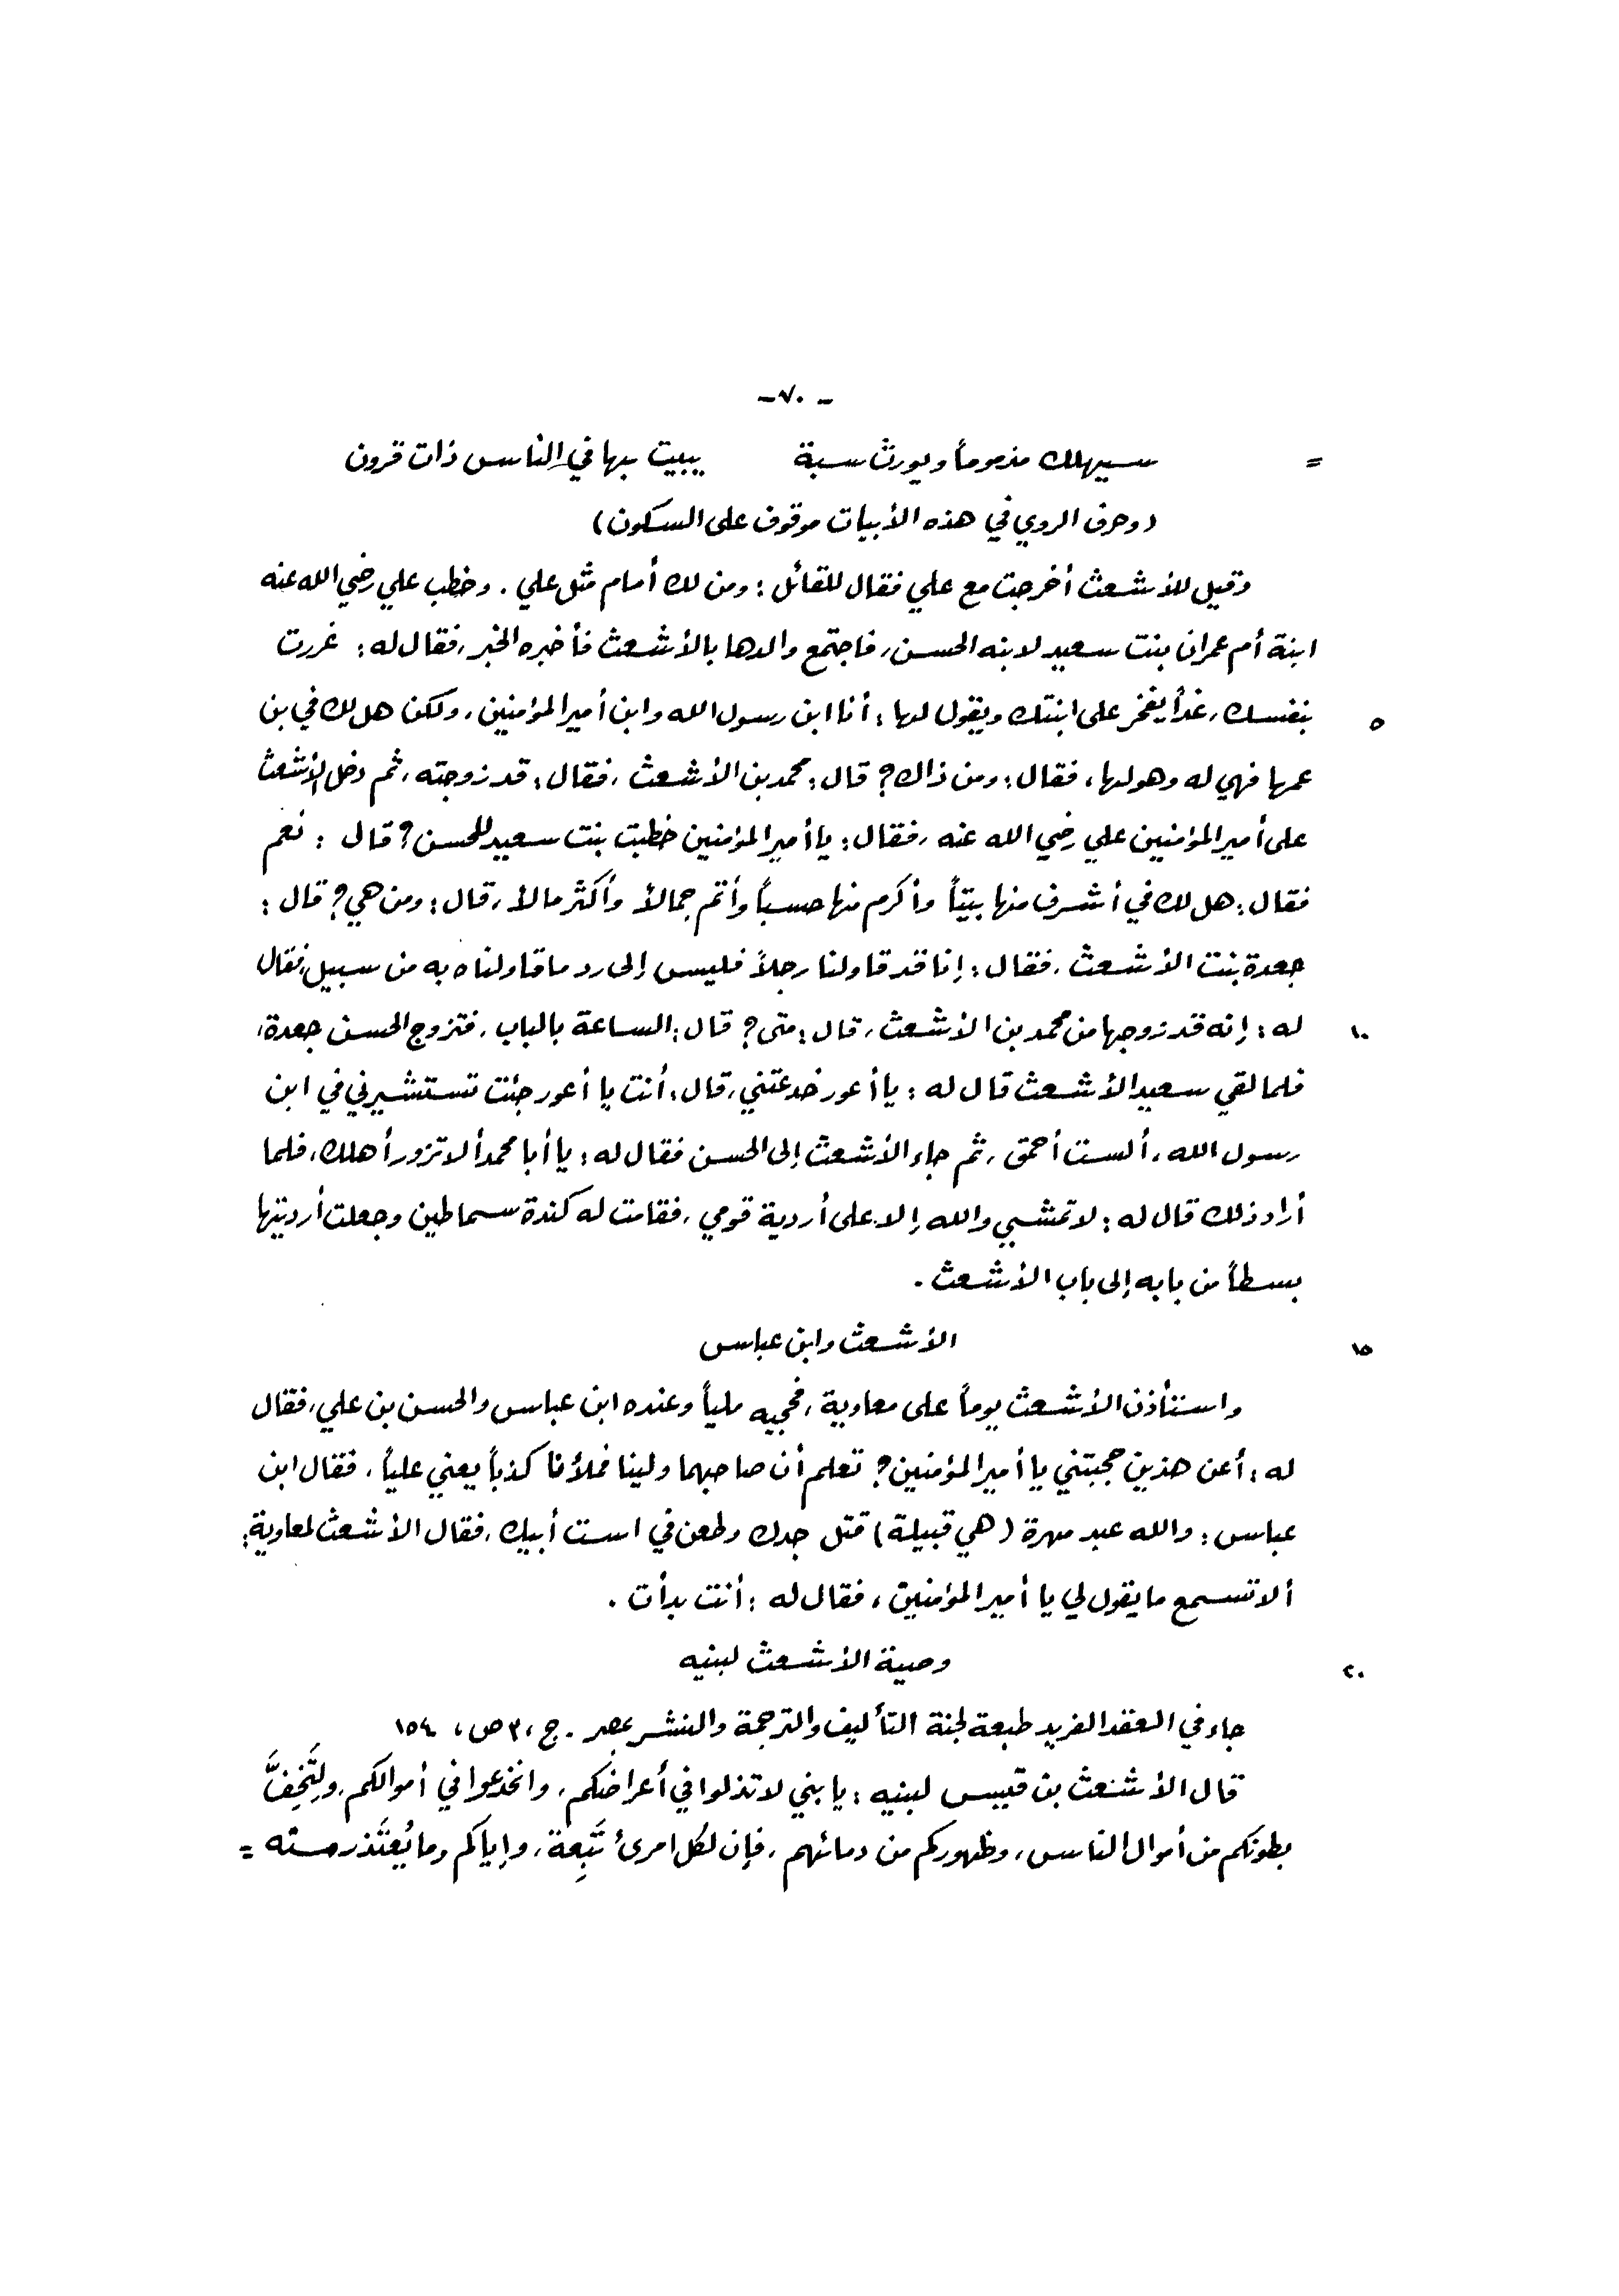 - ٧٠ -
= سيهلك مذموماً ويورث سبة يبيت بها في الناس ذات قرون
(وحرف الروي في هذه الأبيات موقوف على السكون)
وقيل للأشعث أخرجت مع علي فقال للقائل: ومن لك أمام مثل علي. وخطب علي رضي الله عنه
ابنة أم عمران بنت سعيد لابنه الحسن، فاجتمع والدها بالأشعث فأخبره الخبر، فقال له: غررت
بنفسك، غداً يفخر على ابنتك ويقول لها: أنا ابن رسول الله وابن أمير المؤمنين، ولكن هل لك في بن ٥
عمها فهي له وهو لها، فقال: ومن ذاك؟ قال: محمد بن الأشعث، فقال: قد زوجته، ثم دخل الأشعث
على أمير المؤمنين علي رضي الله عنه، فقال: يا أمير المؤمنين خطبت بنت سعيد للحسن؟ قال: نعم
فقال: هل لك في أشرف منها بيتاً وأكرم منها حسباً وأتم جمالاً وأكثر مالاً، قال: ومن هي؟ قال:
جعدة بنت الأشعث، فقال: إنا قد قاولنا رجلاً فليس إلى رد ما قاولناه به من سبيل، فقال
له: إنه قد زوجها من محمد بن الأشعث، قال: متى؟ قال: الساعة بالباب، فتزوج الحسن جعدة، ١٠
فلما لقي سعيد الأشعث قال له: يا أعور خدعتني، قال: أنت يا أعور جئت تستشيرني في ابن
رسول الله، ألست أحمق، ثم جاء الأشعث إلى الحسن فقال له: يا أبا محمد ألا تزور أهلك، فلما
أراد ذلك قال له: لا تمشي والله إلا على أردية قومي، فقامت له كندة سماطين وجعلت أرديتها
بسطاً من بابه إلى باب الأشعث.
الأشعث وابن عباس ١٥
واستأذن الأشعث يوماً على معاوية، فحجبه ملياً وعنده ابن عباس والحسن بن علي، فقال
له: أعن هذين حجبتني يا أمير المؤمنين؟ تعلم أن صاحبهما ولينا فملأنا كذباً يعني علياً، فقال ابن
عباس: والله عبد مهرة (هي قبيلة) قتل جدك وطعن في است أبيك، فقال الأشعث لمعاوية:
ألا تسمع ما يقول لي يا أمير المؤمنين، فقال له: أنت بدأت.
وصية الأشعث لبنيه ٢٠
جاء في العقد الفريد طبعة لجنة التأليف والترجمة والنشر بمصر. ج، ٣ ص، ١٥٤
قال الأشعث بن قيس لبنيه: يا بني لا تذلوا في أعراضكم، وانخدعوا في أموالكم، ولتَخِفَّ
بطونكم من أموال الناس، وظهوركم من دمائهم، فإن لكل امرئ تَبِعة، وإياكم وما يُعتَذر منه =